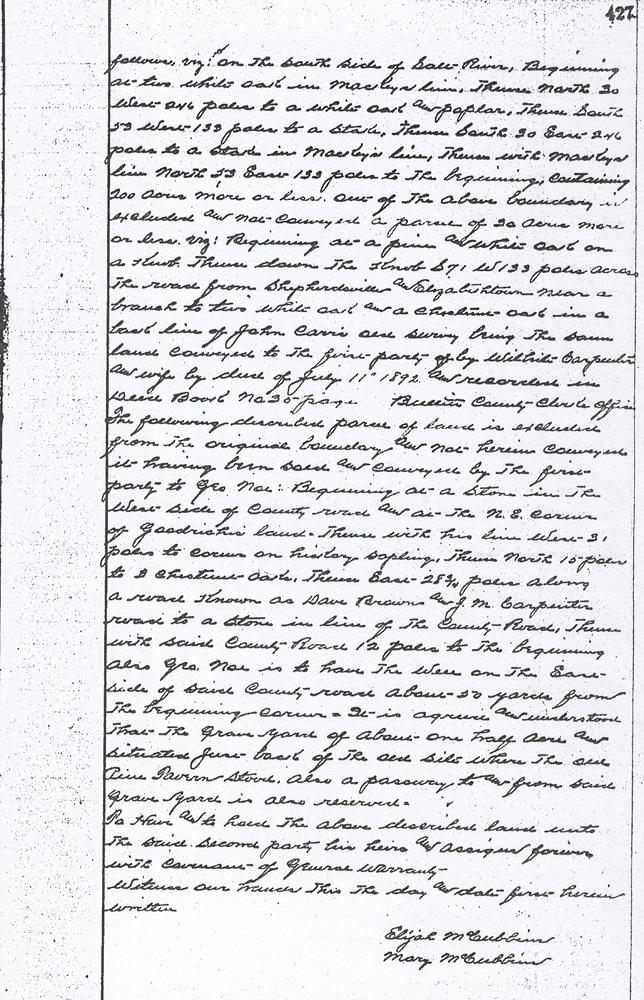 427
follows, viz: on the South Side of Salt River, Beginning
at two white oaks in Mackeys line, Thence North 30
West 246 poles to a white oak and poplar, Thence South
53 West 133 poles to a Stake, Thence South 30 East 246
poles to a Stake in Mackey's line, Thence with Mackeys
line North 53 East 133 poles to the beginning, Containing
200 Acres more or less. out of the above boundary is
excluded and not Conveyed a parcel of 30 Acres more
or less. viz: Beginning at a pine and White oak on
a Knob. Thence down the Knob S71 W133 poles across
The road from Shepherdsville and Elizabethtown near a
branch to two white oaks and a Chestnut oak in a
back line of John Carrs old Survey being the Same
land Conveyed to the first party by Wilhite Carpenter
and wife by deed of July 11" 1892 and recorded in
Deed Book No 30 page Bullitt County Clerks Office
The following described parcel of land is excluded
from the original boundary and not herein Conveyed
it having been sold and Conveyed by the first
party to Geo Noe: Beginning at a Stone in the
West Side of County road and at the N. E. Corner
of Goodrichs land. Thence with his line West 31
poles to Corner on hickory Sapling, Thence North 15 poles
to 3 Chestnut Oaks, Thence East 28¾ poles along
a road Known as Dave Browns and J. M. Carpenter
road to a Stone in line of the County Road, Thence
with said County Road 12 poles to the beginning
Also Geo. Noe is to have the Well on the East
Side of Said County road About 50 yards from
The beginning Corner. It is agreed and understood
That the Grave Yard of About one half Acre and
Situated Just back of the old Site where the old
Pine Tavern Stood. Also a passway to and from Said
Grave Yard is also reserved.
To Have and to hold The above described land unto
The Said Second party his heirs and Assigns forever
with Covenant of General Warranty
Witness our hands This the day and date first herein
written
Elijah McCubbins
Mary McCubbins